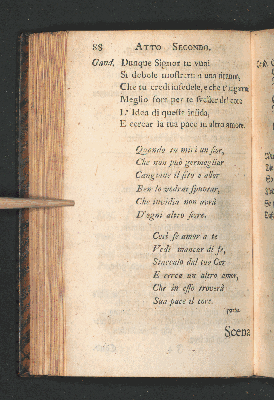 88 ATTO SECONDO.
Gand. Dunque Signor tu vuoi
Si debole mostrarti a una tiranna,
Che tu credi infedele, e che t'inganna
Meglio fora per te sveller dal core
L' Idea di questa infida,
E cercar la tua pace in altro amore.
Quando tu miri un fior,
Che non può germogliar
Cangione il sito e allor
Ben lo vedrai spuntar,
Che invidia non avrà
D'ogni altro fiore.
Così se amor a te
Vedi mancar di fe,
Staccalo dal tuo Cor
E cerca un altro amor,
Che in esso troverà
Sua pace il core.
parte.
Scena